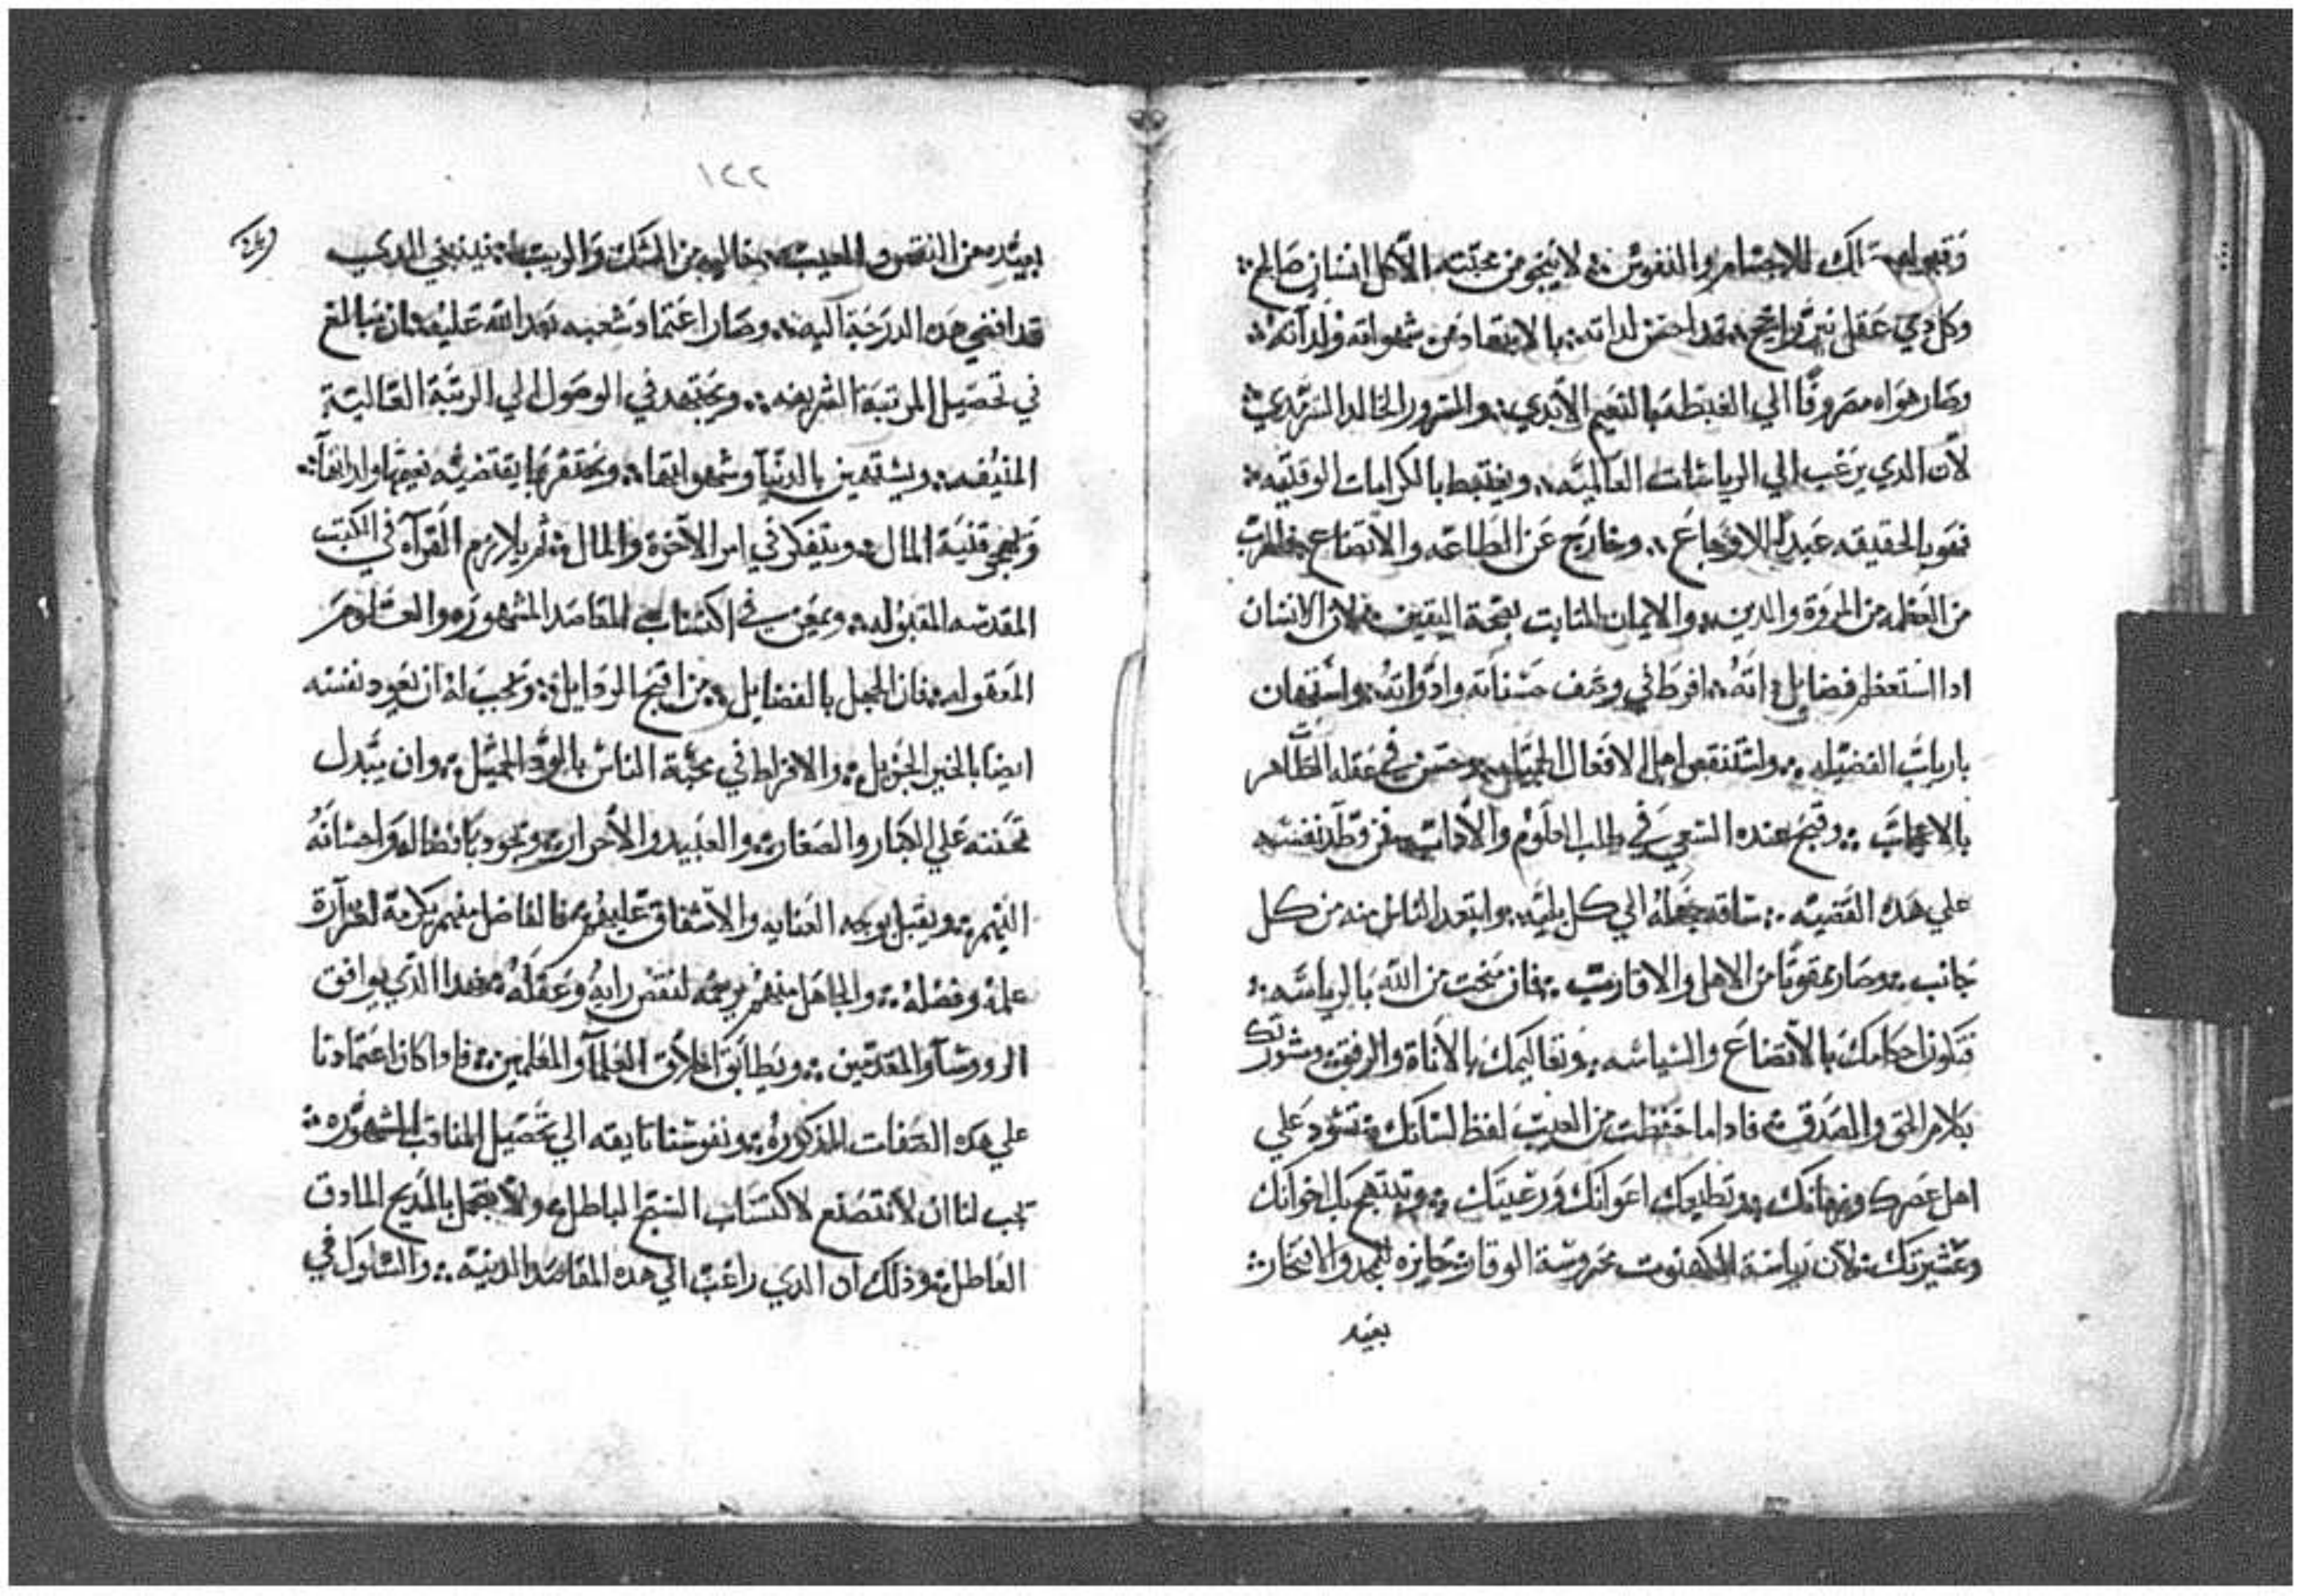 للاجسام والنفوس ∴ لا ينجو من محبّته الّا كل انسان صَالح ∴
وكل دي عَقل نيّر راجح ∴ قد احسن لداته ∴ بالابتعاد من شهواته ولداته ∴
وصَار هوَاه مصَروفًا الي الغبطه بالنعيم الأبدي ∴ والسَرور الخالد السَرمدي ∴
لأن الدي يرَغب الي الرياسَات العَالميّه ∴ ويغتبط بالكرامات الوقتيّه ∴
فهَو بالحقيقه عَبد للاوجاعَ ∴ وخارَج عَن الطَاعه والاتضاع
من العَظمه من المروة والدين ∴ والايمان الثابت بصَحة اليقين ∴ فلان الانسَان
ادا استعَظم فضايل داته ∴ افرطَ في وصَف حسَناته وادوَاته ∴ واستَهان
بارباب الفضَيله ∴ واستنقص اهل الافعَال الجميله وحسَن في عَقله الظَاهر
بالاعجاب ∴ وقبح عنده السَعي في طلب العلوم والأداب ∴ فمن وطَد نفسَه
علي هَده القَضيه ∴ سَاقه جهَله الي كل بليّه ∴ وابتعَد الناس منه من كل
جَانب ∴ وصَار ممقوتًا من الاهل والاقارب ∴ فان منحت من الله بالرياسَه ∴
فتكون احكامك بالأتضاعَ والسَياسه ∴ وتعَاليمك بالأناة والرفق ∴ ومشورتك
بكلام الحَق والصَدق ∴ فادا ما حَفظت من العَيب لفظ لسَانك ∴ تسَود عَلي
اهل عَصَرك وزمانك ∴ وتطيعَك اعوَانك ورَعَيتك ∴ وتبتهج بك اخوانك
وعَشيرتك ∴ لأن رياسَة الكهنوت محروسَة الوقار ∴ حَايزه للمجد والافتخار ∴
بعيَده
١٢٢
بعيَده من النقص والعيب ∴ خاليه من الشَك والريب ∴ فينبغي للدي
قد افضي هَده الدرَجَة اليه ∴ وصَار اعتمَاد شعَبه بَعد الله عَليه ∴ ان يَبالغ
في تحَصَيل المرتبَة الشريفه ∴ ويجَتهد في الوصَول الي الرتبَة العَاليَة
المنيفه ∴ ويسَتهين بالدنيا وشهواتها ∴ ويحَتقر ما يقتضيه نعيمَها ولداتها ∴
قنيَة المال ∴ ويتفكر في امر الآخرة والمآل ∴ ثم يلازم القرآه في الكتب
المقدسَه المقبوله ∴ ويمعَن في اكتسَاب المقاصَد المشهوره والعَلوم
المَعقوله ∴ فان الجهَل بالفضَايل ∴ من اقبح الردَايل ∴ وَيجب لهَ ان يَعود نفسَه
ايضَا بالخير الجزيل ∴ والافراط في محبَة الناسَ بالودّ الجميَل ∴ وان يبَدل
تحَننه عَلي الكبار والصَغار ∴ والعَبيد والأحَرار ∴ ويجَود بافضَاله وَاحسَانه
اليهم ∴ ويقبل بوجه العَنايه والأشفاق عَليهم ∴ فالفاضَل منهم يكرَمه لغزآرة
علمه وفضَله ∴ والجاهَل منهم يرحَمه لنقص رايه وعَقله ∴ فهَدا الدَي يوافق
الرووسَآ والمقدَمين ∴ ويَطابَق اخلاق العَلمآ والمعَلمين ∴ فادا كان اعَتمَادنا
علي هَده الصَفات المدكوره ∴ ونفوسَنا تايقه الي تحَصَيل المناقب المشهوره ∴
يجَب لنا ان لا نتصَنع لاكتسَاب السَبح الباطل ∴ ولا نتجمَل بالمَديح المادق
العَاطل ∴ ودلك ان الدي راغب الي هَده المقاصَد الدينيَة ∴ والسَلوك في